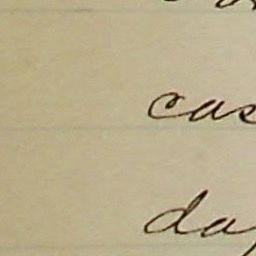 cas
day